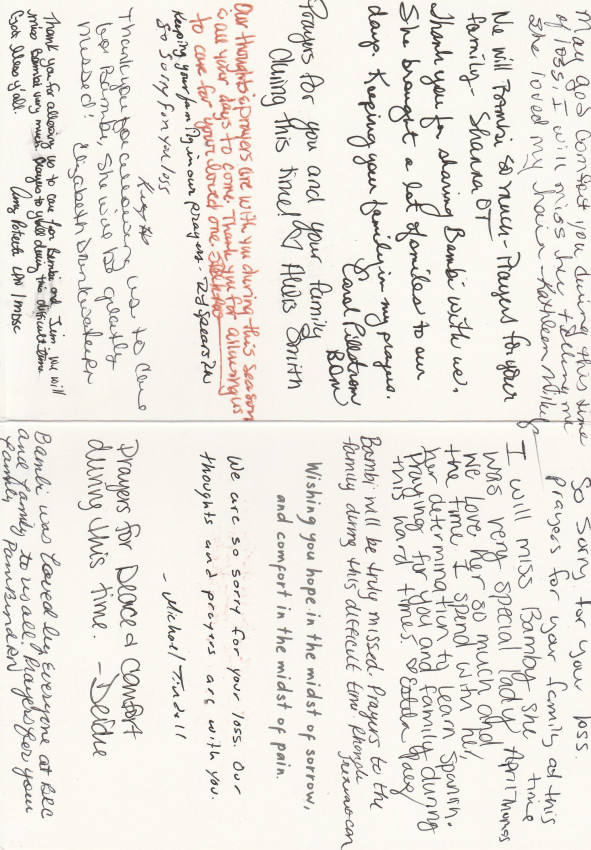 May God comfort you during this time
of loss. I will miss her + telling me
she loved my hair - Kathleen
We will Bambi so much - Prayers for your
family - Shanna OT
Thank you for sharing Bambi with us.
She brought a lot of smiles to our
days. Keeping your family in my prayers.
Carol
BOM
Prayers for you and your family
during this time! Smith
Our thoughts & prayers are with you during this season
& all your days to come. Thank you for allowing us
to care for your loved one
Keeping your family in our prayers.
So sorry for you loss
Thank you for allowing us to care
for Bambi, she will be greatly
missed! Elizabeth Drinkwater
Thank you for allowing us to care for Bambi and Jim we will
miss Bambi very much. Prayers to y'all during this difficult time
God bless y'all. Amy LPN / MDSC
So sorry for your loss.
prayers for your family at this
time
April Thomas
I will miss Bamby she
was very special lady
We love her so much and
the time I spend with her,
her determination to learn Spanish.
Praying for you and family during
this hard times.
Bambi will be truly missed. Prayers to the
family during this difficult time. Rhonda
Wishing you hope in the midst of sorrow,
and comfort in the midst of pain.
We are so sorry for your loss. Our
thoughts and prayers are with you.
- Michael Tindell
Prayers for peace & comfort
during this time. - Deidre
Bambi was loved by everyone at BCC
and family to us all. Prayers for your
family Pam Byndon